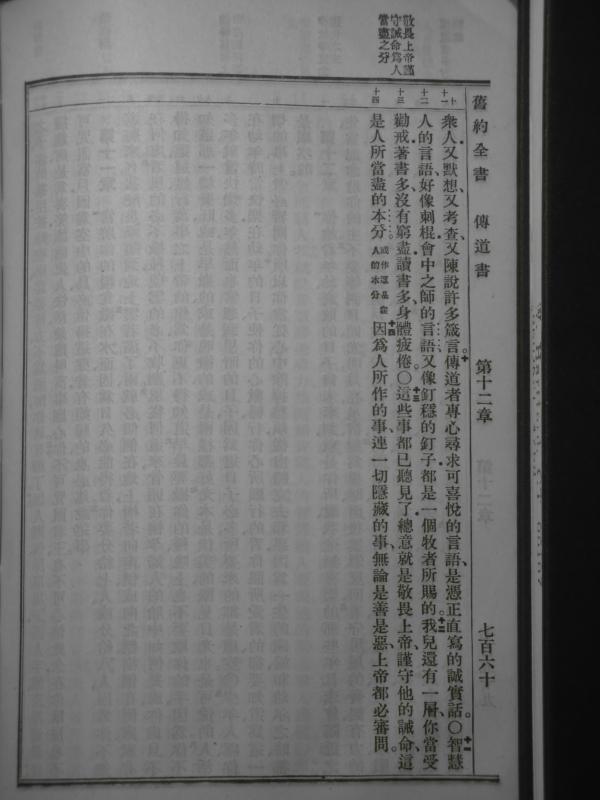 舊約全書 傳道書 第十二章 七百六十
衆人、又默想、又考查、又陳說許多箴言。十傳道者專心尋求可喜悅的言語、是憑正直寫的誠實話。〇十一智慧
人的言語、好像刺棍、會中之師的言語、又像釘穩的釘子、都是一個牧者所賜的。十二我兒、還有一層、你當受
勸戒、著書多、沒有窮盡、讀書多、身體疲倦。〇十三這些事都已聽見了、總意就是敬畏上帝、謹守他的誡命、這
是人所當盡的本分。或作這是衆人的本分十四因爲人所作的事、連一切隱藏的事、無論是善是惡、上帝都必審問。
十
十一
十二
十三
十四
敬畏上帝謹
守誡命爲人
當盡之分